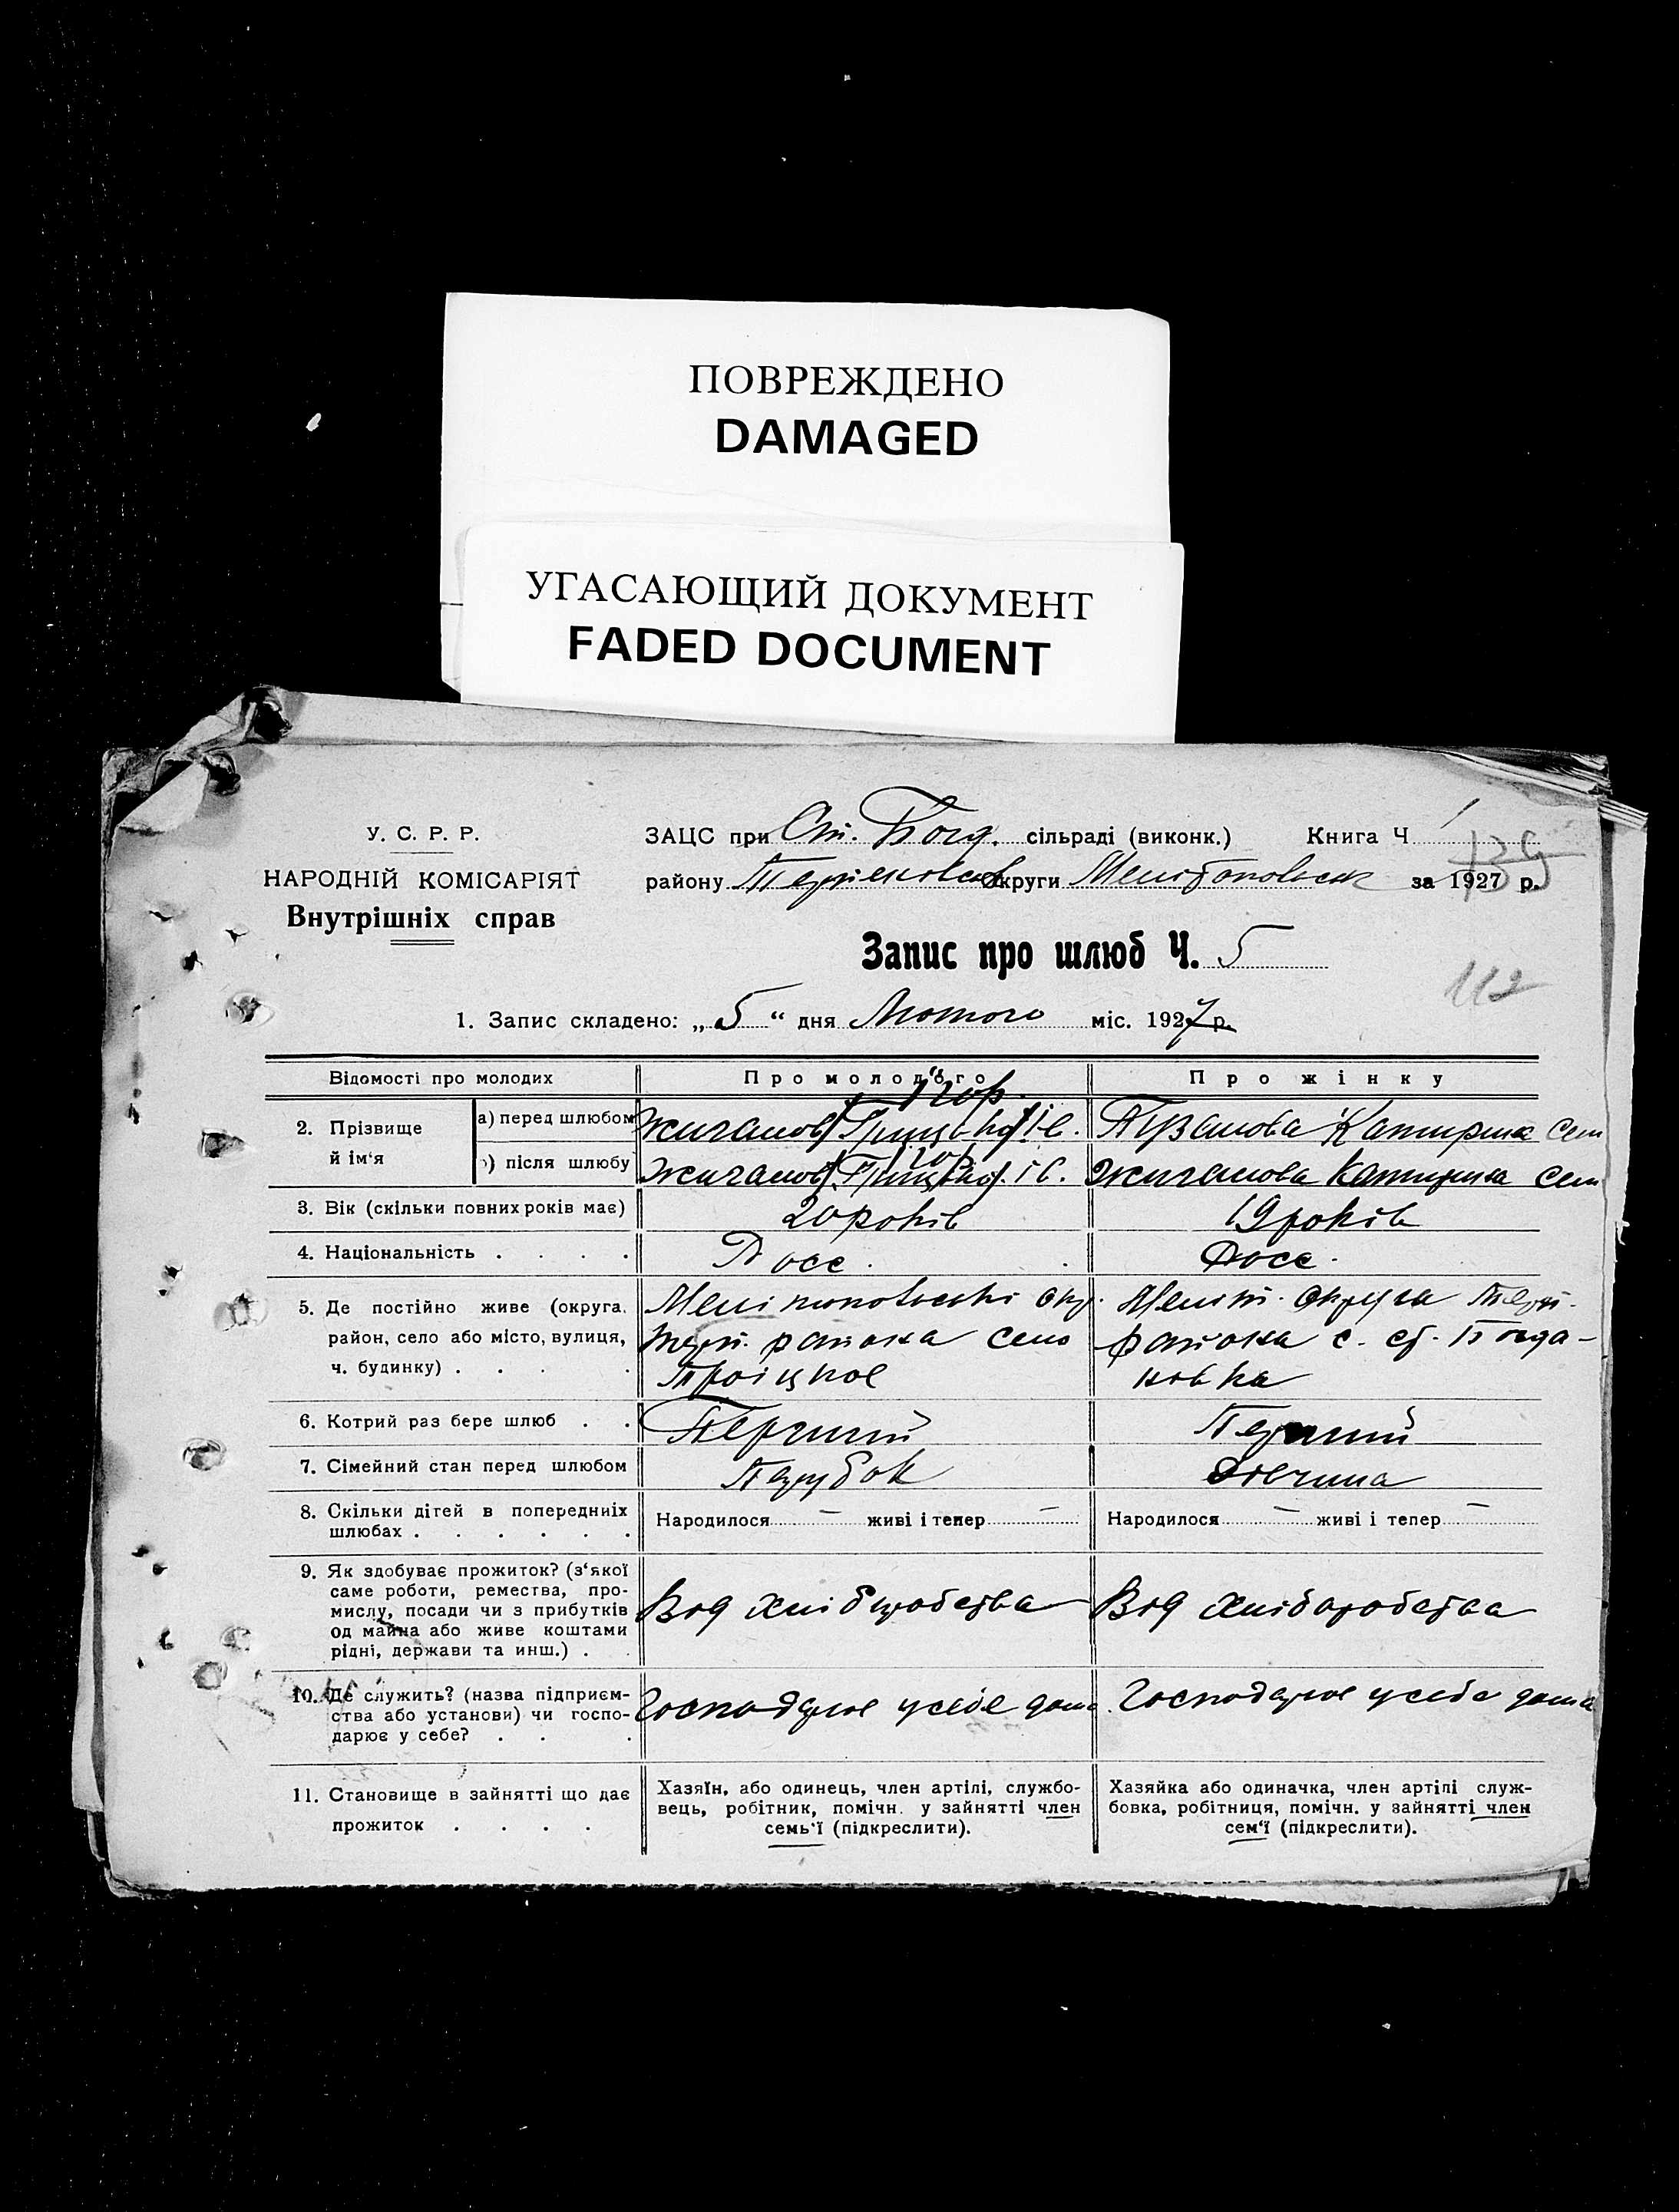 ПОВРЕЖДЕНО
DAMAGED
УГАСАЮЩИЙ ДОКУМЕНТ
FADED DOCUMENT
У. С. Р. Р.
НАРОДНІЙ КОМІСАРІЯТ
Внутрішніх справ
ЗАЦС при Ст. Богд. сільраді (виконк.) Книга Ч 1
району округи за 1927 р.
Запис про шлюб Ч. 5
112
1. Запис складено: „5“ дня Лютого міс. 1927 р.
Відомості про молодих Про молодого Про жінку
2. Прізвище й ім‘я
а) перед шлюбом Жиганов Ів. Катирина Сем
б) після шлюбу Жиганов Ів. Жиганова Катирина Сем
3. Вік (скільки повних років має) 20 років 19 років
4. Національність . . . . Росс. Росс.
5. Де постійно живе (округа, Меліт. округа
район, село або місто, вулиця, району село району с. ст. Богда-
ч. будинку) . . . . Троіцкое новка
6. Котрий раз бере шлюб . . Перший Перший
7. Сімейний стан перед шлюбом Парубок Дівчина
8. Скільки дітей в попередніх
шлюбах . . . . . .
Народилося — живі і тепер — Народилося — живі і тепер —
9. Як здобуває прожиток? (з‘якої
саме роботи, ремества, про-
мислу, посади чи з прибутків
од майна або живе коштами
рідні, держави та инш.) .
Від хліборобства Від хліборобства
10. Де служить? (назва підприєм-
ства або установи) чи госпо-
дарює у себе? . . .
Господарює у себе дома Господарює у себе дома
11. Становище в зайнятті що дає
прожиток . . . .
Хазяїн, або одинець, член артілі, службо-
вець, робітник, помічн. у зайнятті член
семь‘ї (підкреслити).
Хазяйка або одиначка, член артілі служ-
бовка, робітниця, помічн. у зайнятті член
сем‘ї (підкреслити).